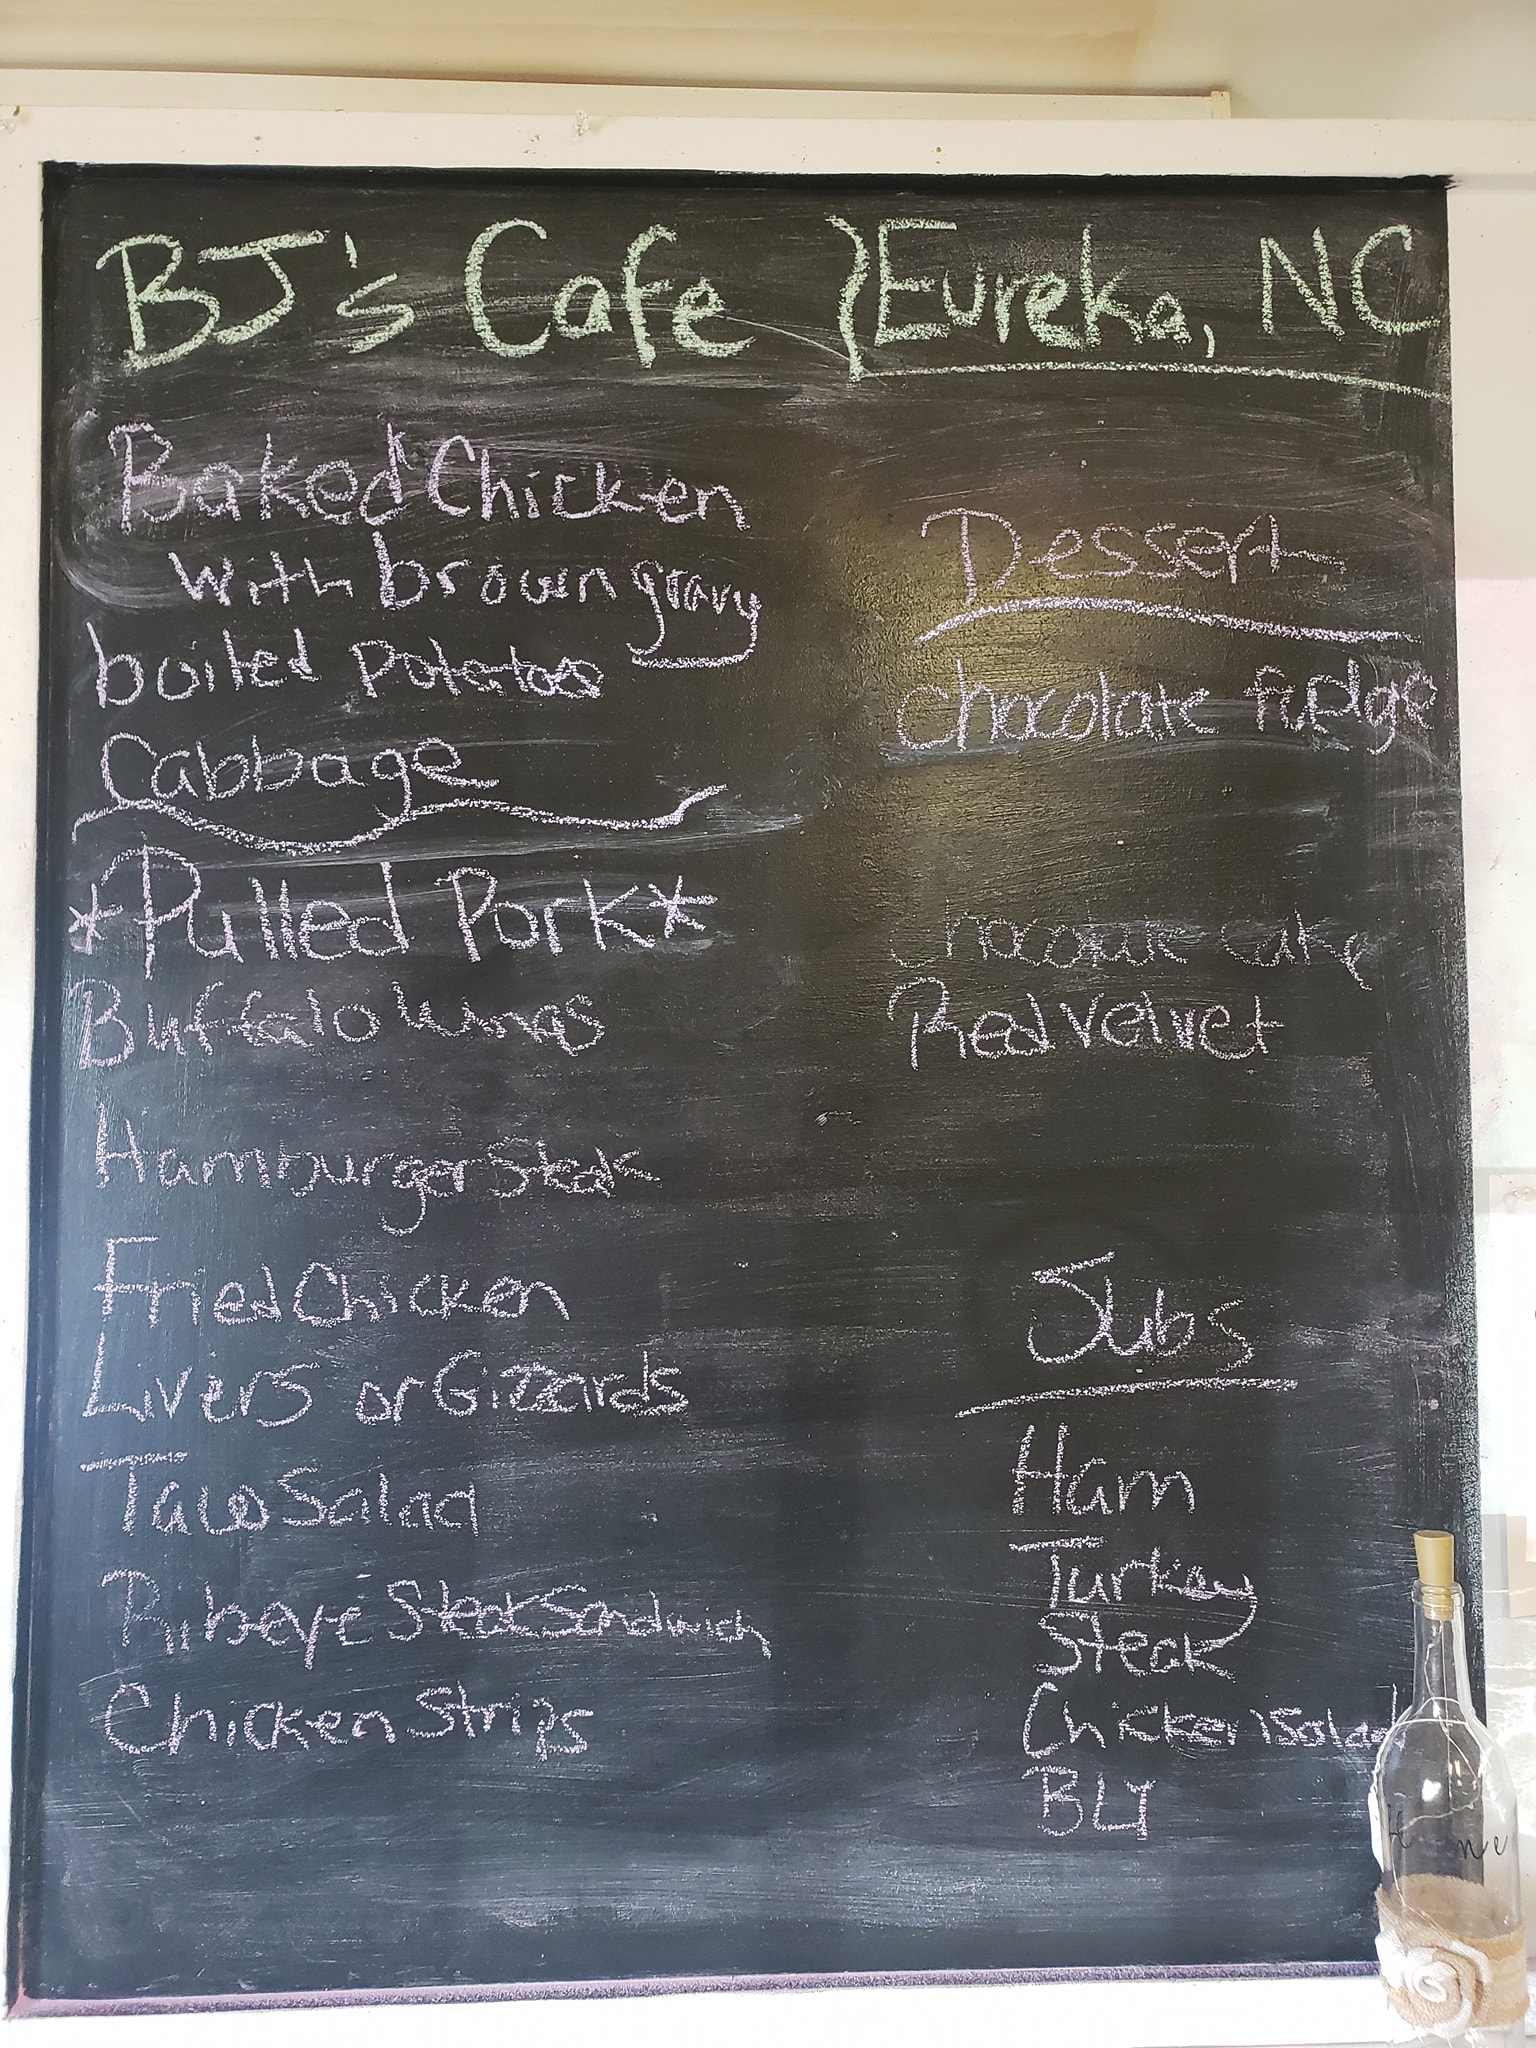 BJ's Cafe } Eureka, NC
Baked Chicken
with brown gravy
boiled Potatoes
Cabbage
*Pulled Pork*
Buffalo Wings
Hamburger Steak
Fried Chicken
Livers or Gizzards
Taco Salad
Ribeye Steak Sandwich
Chicken Strips
Dessert
Chocolate fudge
Chocolate cake
Red Velvet
Subs
Ham
Turkey
Steak
Chicken Salad
BLT